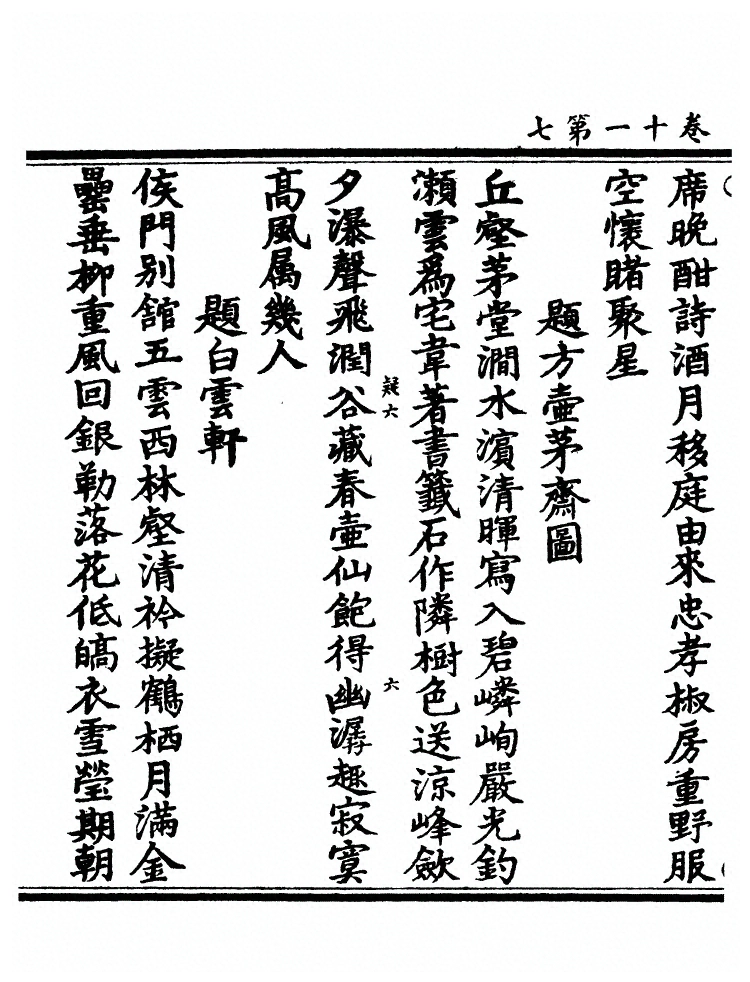 卷十一第七
席晚酣詩酒月移庭由來忠孝椒房重野服
空懷睹聚星
題方壺茅齋圖
丘壑茅堂澗水濱清暉寫入碧嶙峋嚴光釣
瀨雲爲宅韋著書籤石作隣樹色送涼峰斂
夕瀑聲飛潤谷藏春壺仙飽得幽潺趣寂寞
疑六
六
高風属幾人
題白雲軒
侯門別館五雲西林壑清衿擬鶴栖月滿金
罍垂柳重風回銀勒落花低皜衣雪瑩期朝